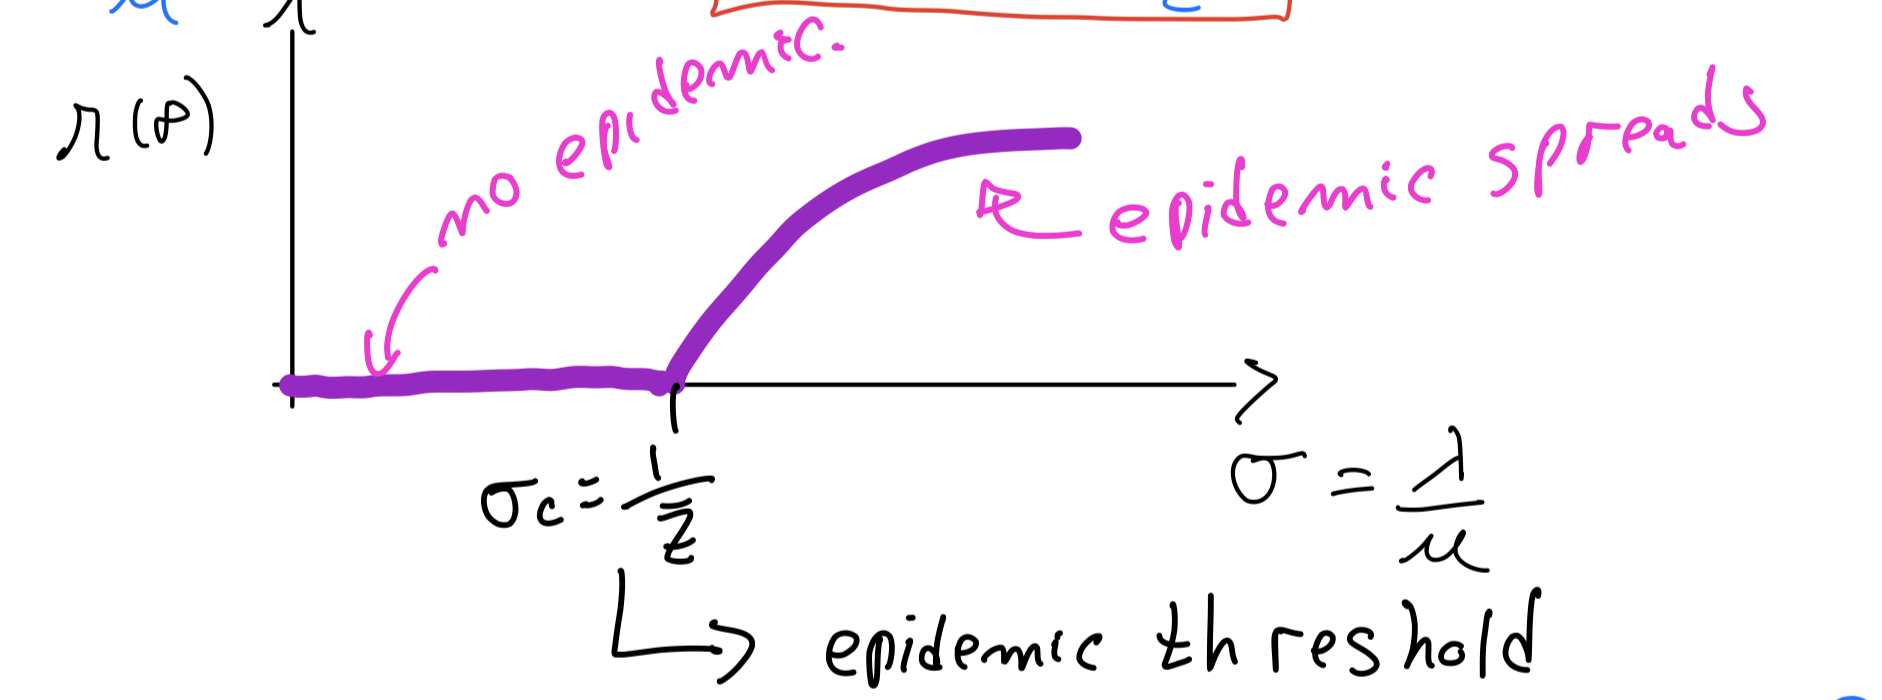 r(∞)
no epidemic.
epidemic spreads
σc = 1/z̄
σ = λ/μ
epidemic threshold